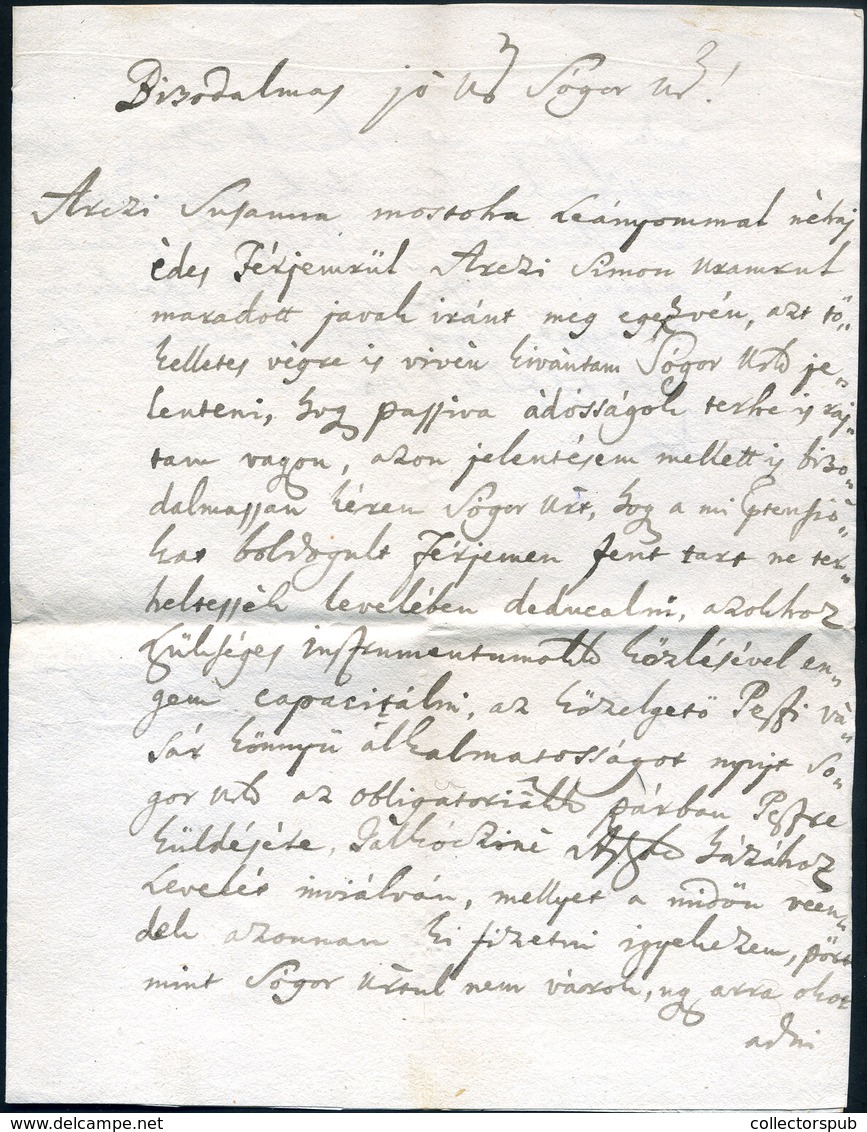 Bizodalmas jó Ur Sógor Ur!
Arczi Susanna mostoha Leányommal néhaj
èdes Férjemrül Arczi Simon Uramrul
maradott javak iránt meg egyezvén, azt tö„
kelletes vègre is vivèn kivàntam Sógor Urk je„
lenteni, hog passiva àdósságok terhe is raj„
tam vagon, azon jelentésem mellett is bizo„
dalmassan kérem Sógor Urt, hog a mi ptensió„
kat boldogult Férjemen fent tart ne ter„
heltessék levelében deducalni, azokhoz
szükséges instrumentumok közlésével en„
gem capacitálni, az közelgetö Pesti và„
sár könnyü alkalmatosságot nyujt So„
gor Urk az obligatoriák párban Pestre
küldéjére, házához
Levelét inviálván, mellyet a midön veen„
dek azonnan ki fizetni igyekezem, pört
mint Sógor Urtul nem várok, ug arra okot
adni
collectorspub.com